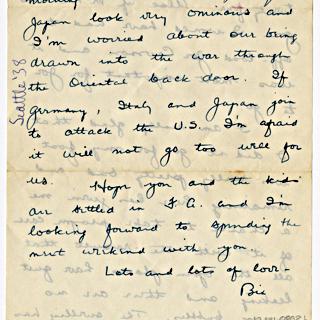 Japan look very ominous and
I'm worried about our being
drawn into the war through
the Oriental back door. If
Germany Italy and Japan join
to attack the U.S. I'm afraid
it will not go too well for
us. Hope you and the kids
are settled in F.A. and I'm
looking forward to spending the
next weekend with you
Lots and lots of love-
Bix
Seattle '38